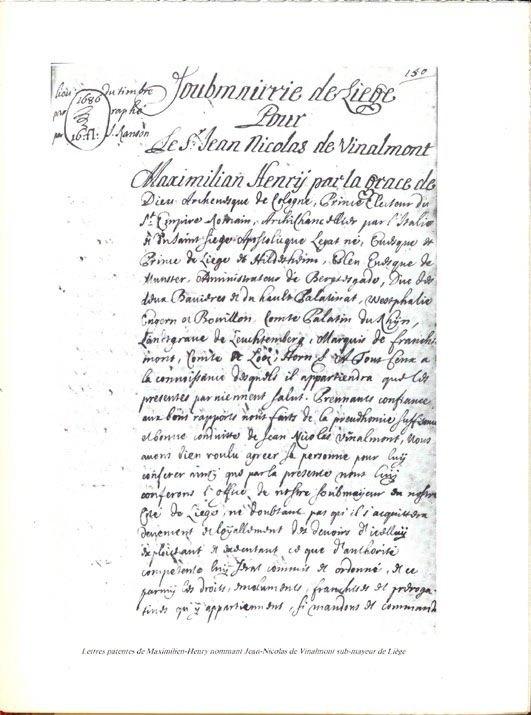 150
lieu du timbre
1686 graphé
16.fl: J. Ranson
Soubmairie de Liege
Pour
Le Sr. Jean Nicolas de Vinalmont
Maximilian Henrÿ par la Grace de
Dieu Archeuesque de Cologne, Prince Electeur du
St. Empire Romain, Archichancellier par l'Italie
et du Saint Siege Apostolicque Legat né, Euesque et
Prince de Liege et Hildesheim, Esleu Euesque de
Munster, Administrateur de Bergtesgade, Duc des
deux Bauieres et du hault Palatinat, Westphalie
Engern et Bouillon, Comte Palatin du Rhÿn,
Landtgraue de Leuchtemberg, Marquis de franchi-
mont, Comte de Looz, Horn A Tout Ceux a
la connoissance desquels il appartiendra que les
presentes paruiennent salut. Prennants confiance
aux bons rapports nous faits de la preudhomie suffisance
et bonne conduitte de Jean Nicolas Vinalmont, Nous
auons bien voulu agreer sa personne pour luÿ
conferer ainsi que par la presente nous luÿ
conferons l'office de nostre soubmayeur en nostre
Cité de Liege, ne doubtant pas qu'il s'acquittera
deuement et loÿallement des deuoirs d'icelluÿ
exploictant et executant ce que d'authorité
competente luÿ serat commis et ordonné, et ce
parmÿ les droits, emoluments, franchises et preroga-
tiues qu'ÿ appartiennent, si mandons et command
Lettres patentes de Maximilien-Henry nommant Jean-Nicolas de Vinalmont sub-mayeur de Liège